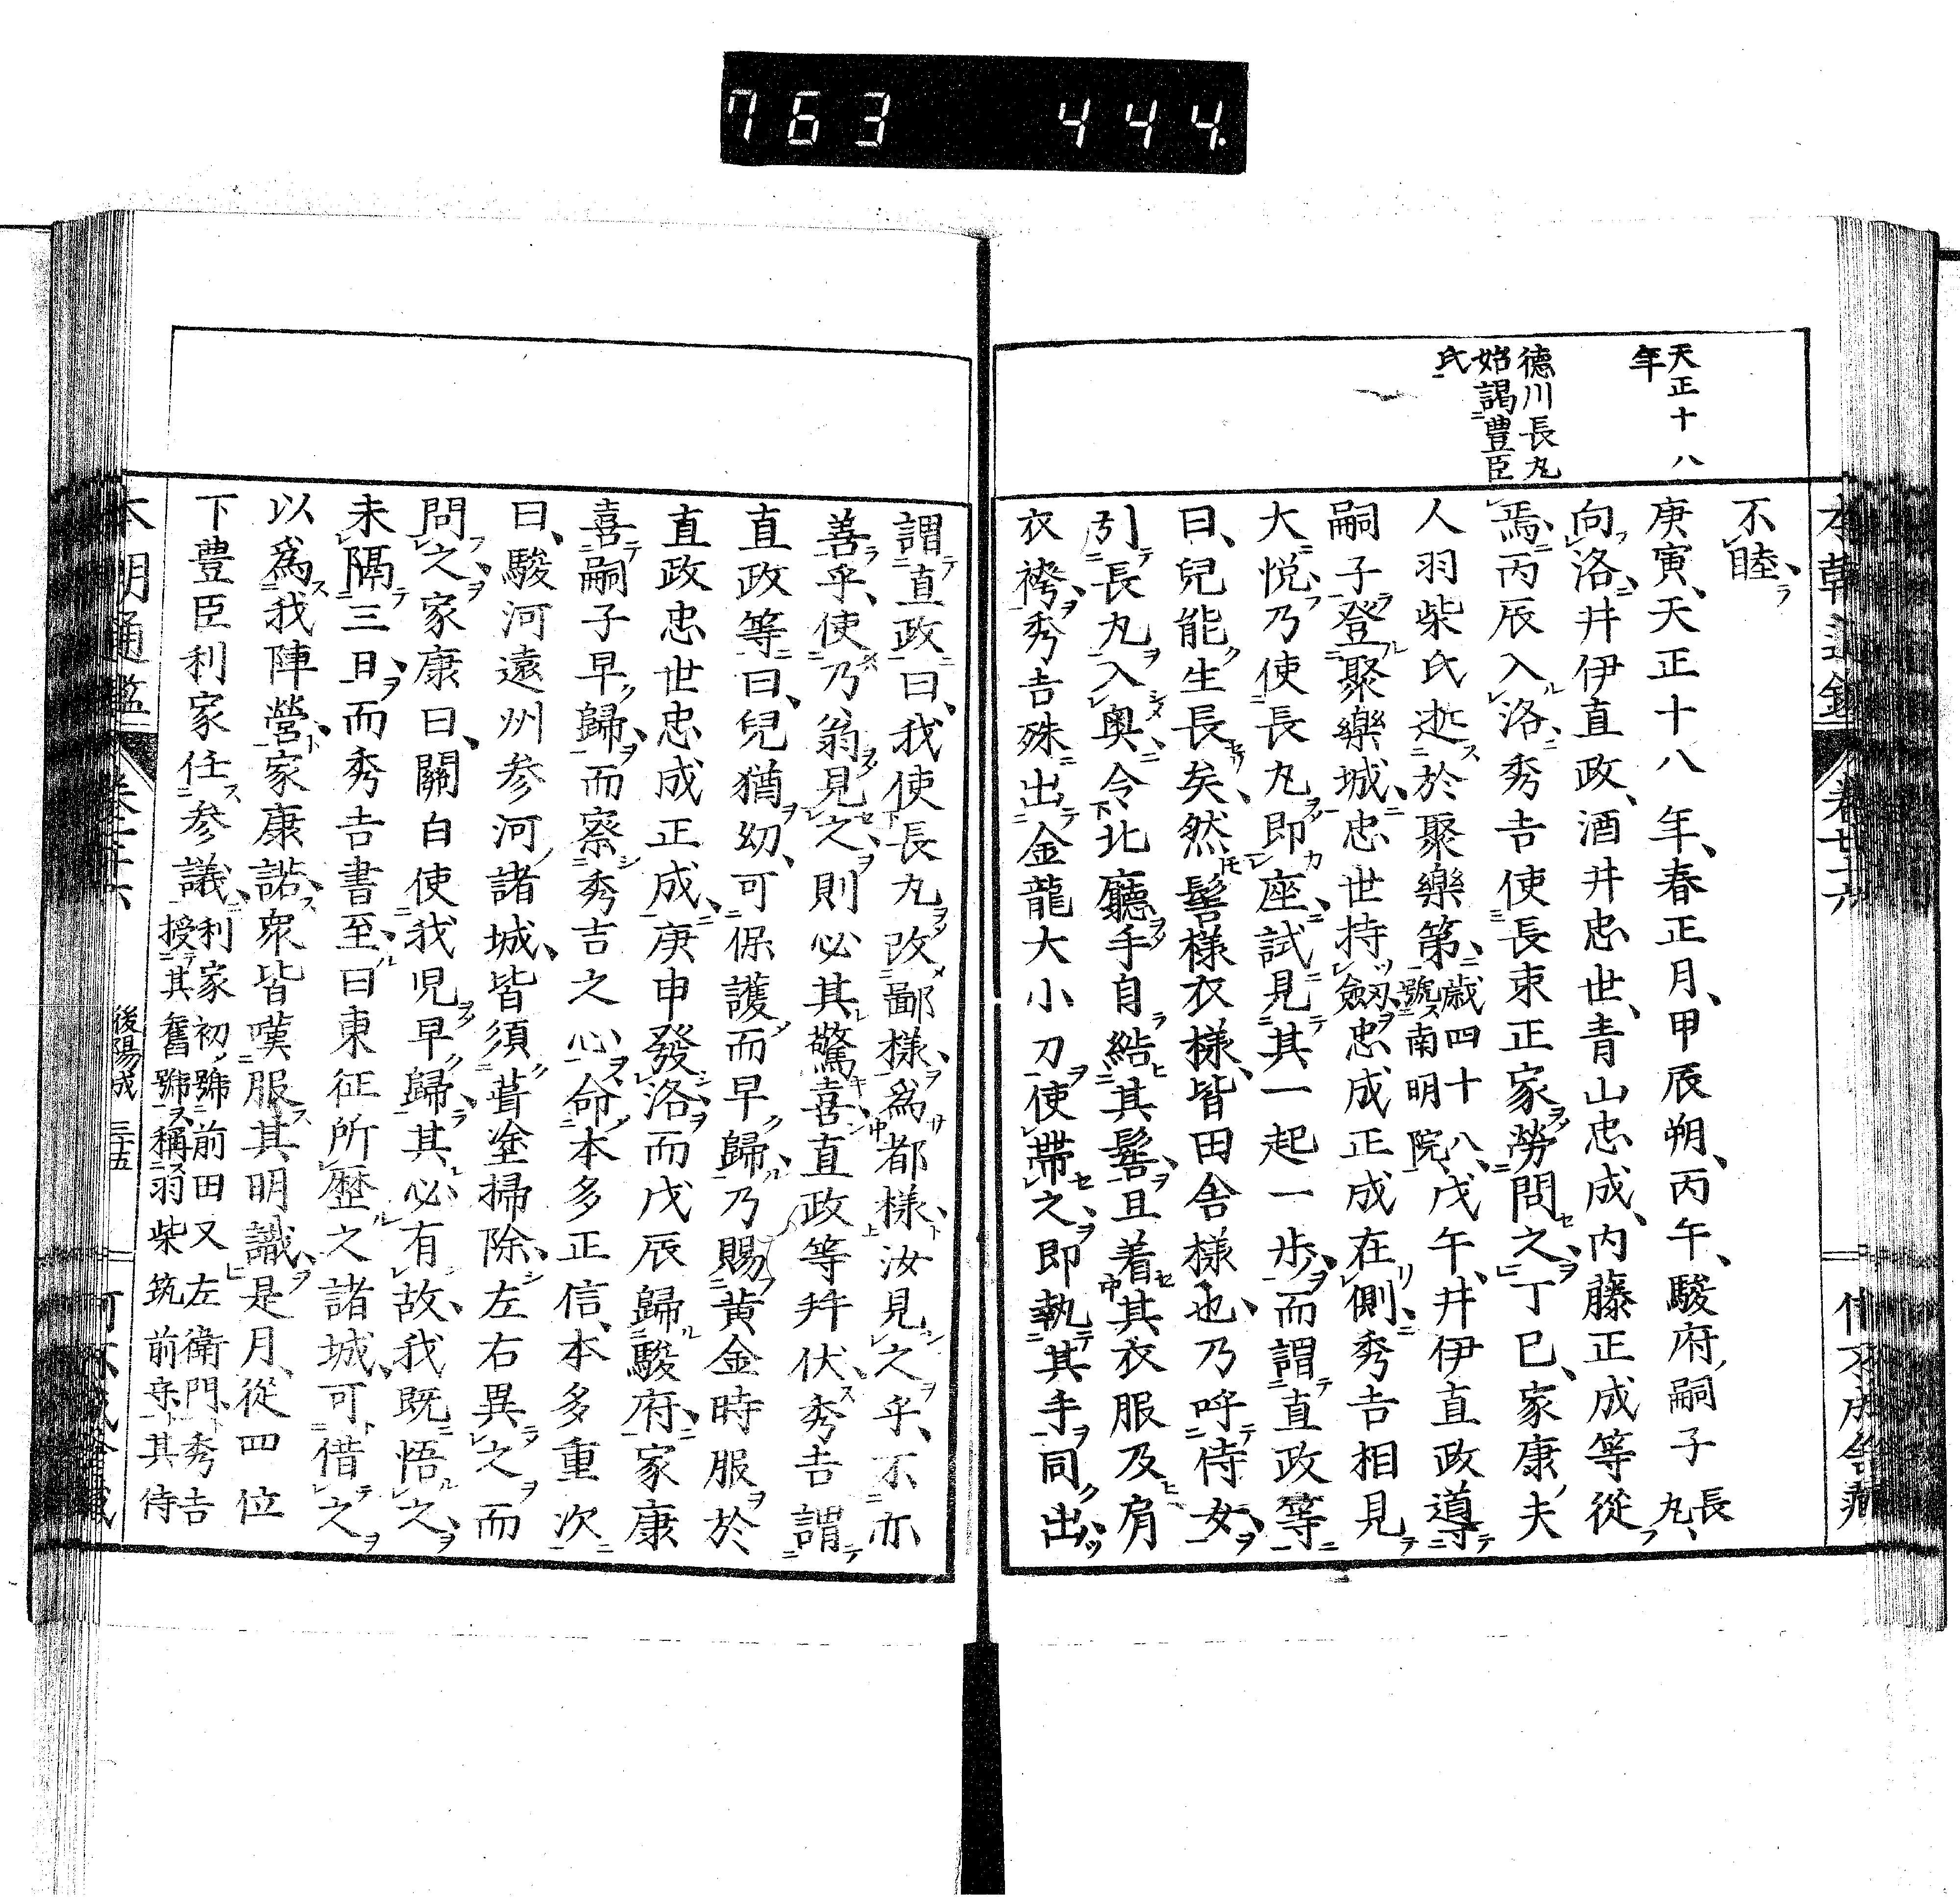 763 444.
天正十八
年
德川長丸
始謁豊臣
氏
不睦、
庚寅、天正十八年、春正月、甲辰朔、丙午、駿府嗣子長丸、
向洛、井伊直政、酒井忠世、青山忠成、内藤正成等從
焉、丙辰入洛、秀吉使長束正家勞問之、丁巳、家康夫
人羽柴氏逝於聚樂第、歳四十八、號南明院、戊午、井伊直政導
嗣子登聚樂城、忠世持劔、忠成正成在側、秀吉相見
大悦、乃使長丸即座、試見其一起一步、而謂直政等
曰、兒能生長矣、然髻樣衣樣、皆田舍樣也、乃呼侍女、
引長丸入奥、令北廳手自結其髻、且着其衣服及肩
衣袴、秀吉殊出金龍大小刀、使帶之、即執其手同出、
謂直政曰、我使長丸改鄙樣、爲都樣、汝見之乎、不亦
善乎、使乃翁見之、則必其驚喜、直政等拜伏、秀吉謂
直政等曰、兒猶幼、可保護而早歸、乃賜黄金時服於
直政忠世忠成正成、庚申發洛、而戊辰歸駿府、家康
喜嗣子早歸、而察秀吉之心、命本多正信、本多重次
曰、駿河遠州参河諸城、皆須葺塗掃除、左右異之、而
問之、家康曰、關白使我児早歸、其必有故、我既悟之、
未隔三日、而秀吉書至、曰東征所歷之諸城、可借之
以爲我陣營、家康諾、衆皆嘆服其明識、是月、從四位
下豊臣利家任参議、利家初號前田又左衛門、秀吉
授其舊號、稱羽柴筑前守、其侍
卷廿六
後陽成
三十五